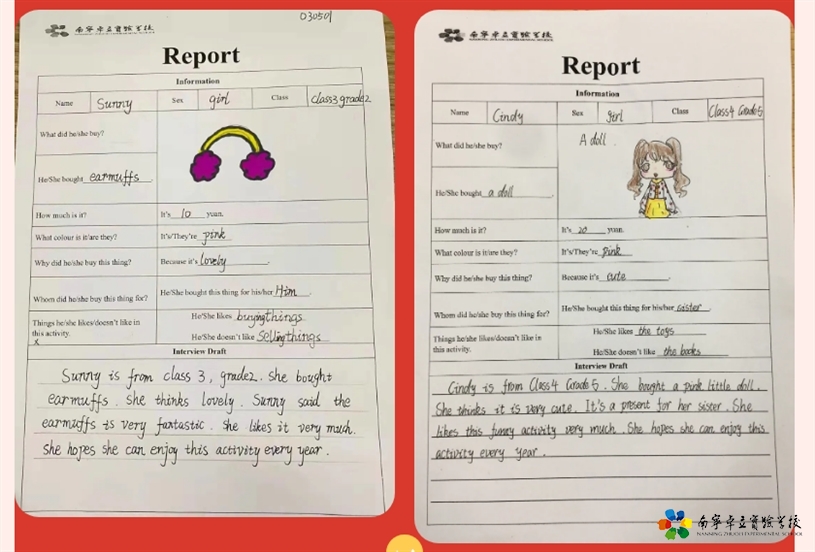 03050
南宁卓立实验学校
Report
Information
Name Sunny Sex girl Class class3 grade2
What did he/she buy?
He/She bought earmuffs.
How much is it? It's 10 yuan.
What colour is it/are they? It's/They're pink
Why did he/she buy this thing? Because it's lovely.
Whom did he/she buy this thing for? He/She bought this thing for his/her Him.
Things he/she likes/doesn't like in this activity. He/She likes buying things
He/She doesn't like Selling things
Interview Draft
Sunny is from class 3, grade2. She bought
earmuffs. She thinks lovely. Sunny said the
earmuffs is very fantastic. She likes it very much.
She hopes she can enjoy this activity every year.
南宁卓立实验学校
Report
Information
Name Cindy Sex girl Class Class4 Grade5
What did he/she buy? A doll.
He/She bought a doll.
How much is it? It's 20 yuan.
What colour is it/are they? It's/They're pink
Why did he/she buy this thing? Because it's cute.
Whom did he/she buy this thing for? He/She bought this thing for his/her sister.
Things he/she likes/doesn't like in this activity. He/She likes the toys
He/She doesn't like the books
Interview Draft
Cindy is from Class4 Grade5. She bought a pink little doll.
She thinks it is very cute. It's a present for her sister. She
likes this funny activity very much. She hopes she can enjoy this
activity every year.
南宁卓立实验学校
NANNING ZHUOLI EXPERIMENTAL SCHOOL